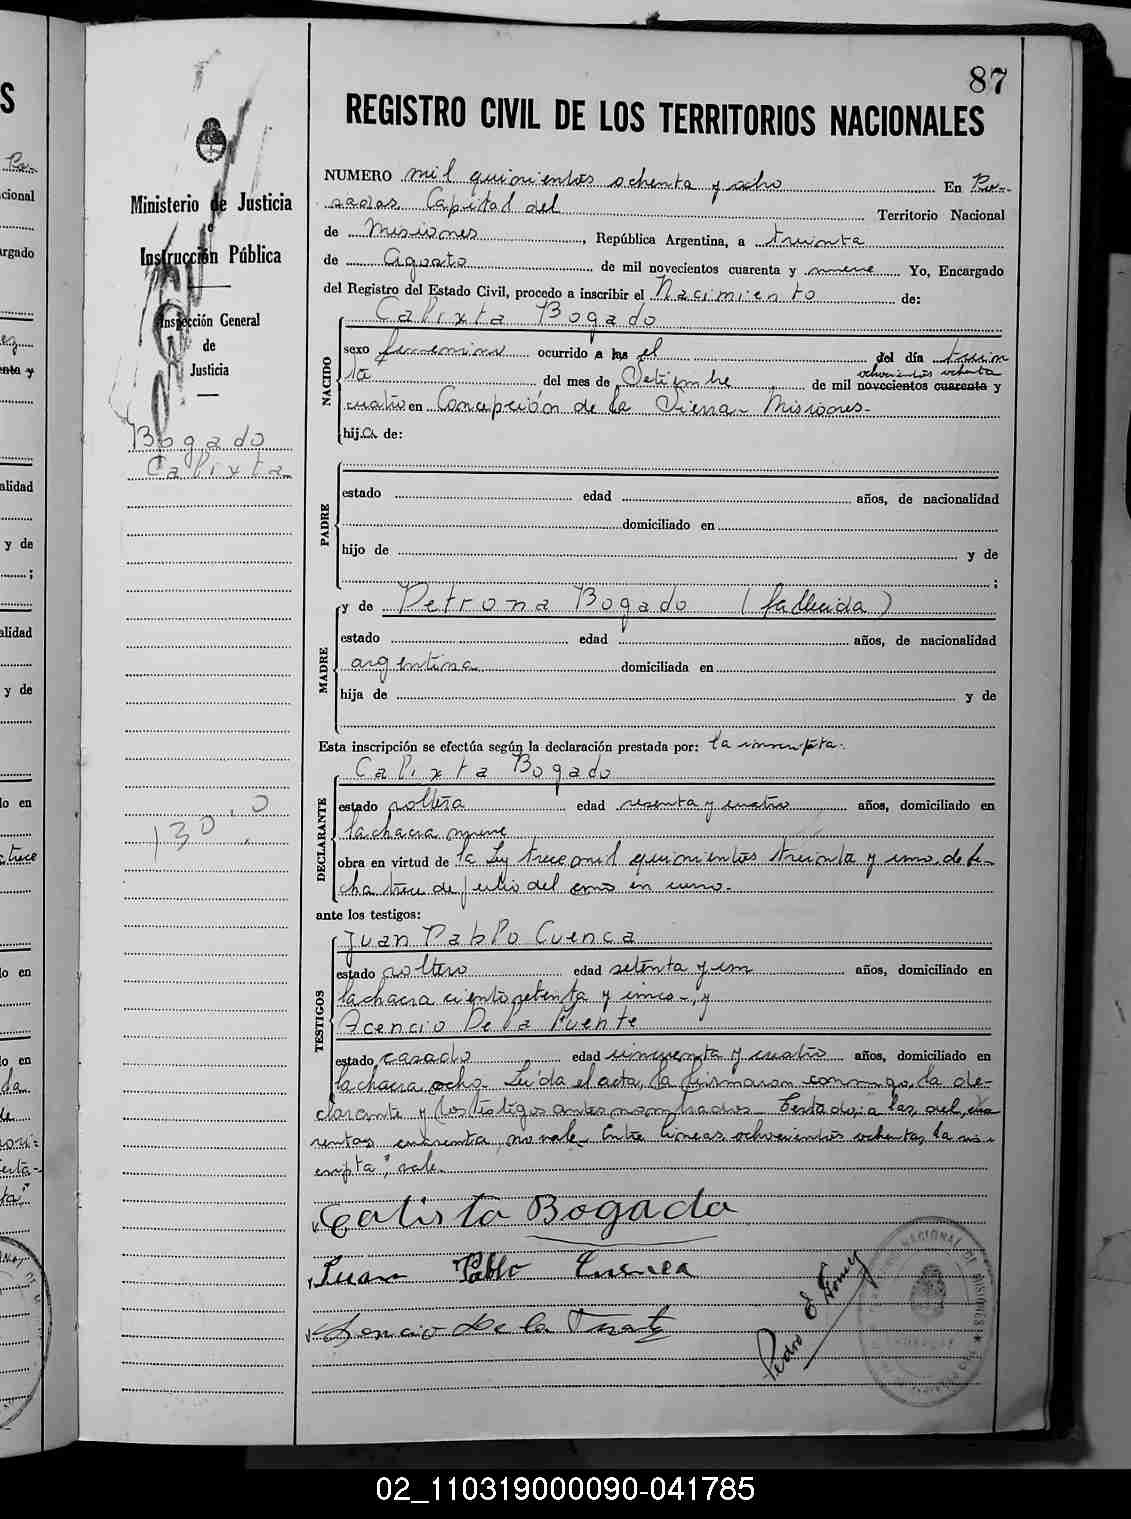 87
REGISTRO CIVIL DE LOS TERRITORIOS NACIONALES
Ministerio de Justicia
e
Instrucción Pública
Inspección General
de
Justicia
Bogado
Calixta
130
NUMERO mil quinientos ochenta y ocho En Po-
sadas Capital del Territorio Nacional
de Misiones, República Argentina, a treinta
de Agosto de mil novecientos cuarenta y nueve Yo, Encargado
del Registro del Estado Civil, procedo a inscribir el Nacimiento de:
Calixta Bogado
NACIDO
sexo femenino ocurrido a las el del día trein
ochocientos ochenta
ta del mes de Setiembre de mil novecientos cuarenta y
cuatro en Concepción de la Sierra - Misiones-
hija de:
PADRE
estado edad años, de nacionalidad
domiciliado en
hijo de y de
;
MADRE
y de Petrona Bogado (fallecida)
estado edad años, de nacionalidad
argentina domiciliada en
hija de y de
Esta inscripción se efectúa según la declaración prestada por: la inscripta.
Calixta Bogado
DECLARANTE
estado soltera edad sesenta y cuatro años, domiciliado en
la chacra nueve
obra en virtud de la Ley trece mil quinientos treinta y uno, de fe-
cha trece de julio del año en curso.
ante los testigos:
Juan Pablo Cuenca
TESTIGOS
estado soltero edad setenta y un años, domiciliado en
la chacra ciento setenta y cinco-, y
Acencio De la Fuente
estado casado edad cincuenta y cuatro años, domiciliado en
la chacra ocho. Leída el acta, la firmaron conmigo, la de-
clarante y los testigos antes nombrados. Testado: a las, del,
cuarenta, no vale. Entre líneas, ochocientos ochenta, la ins-
cripta", vale.
Calista Bogado
Juan Pablo Cuenca
Acencio De la Fuente
Pedro
02_110319000090-041785